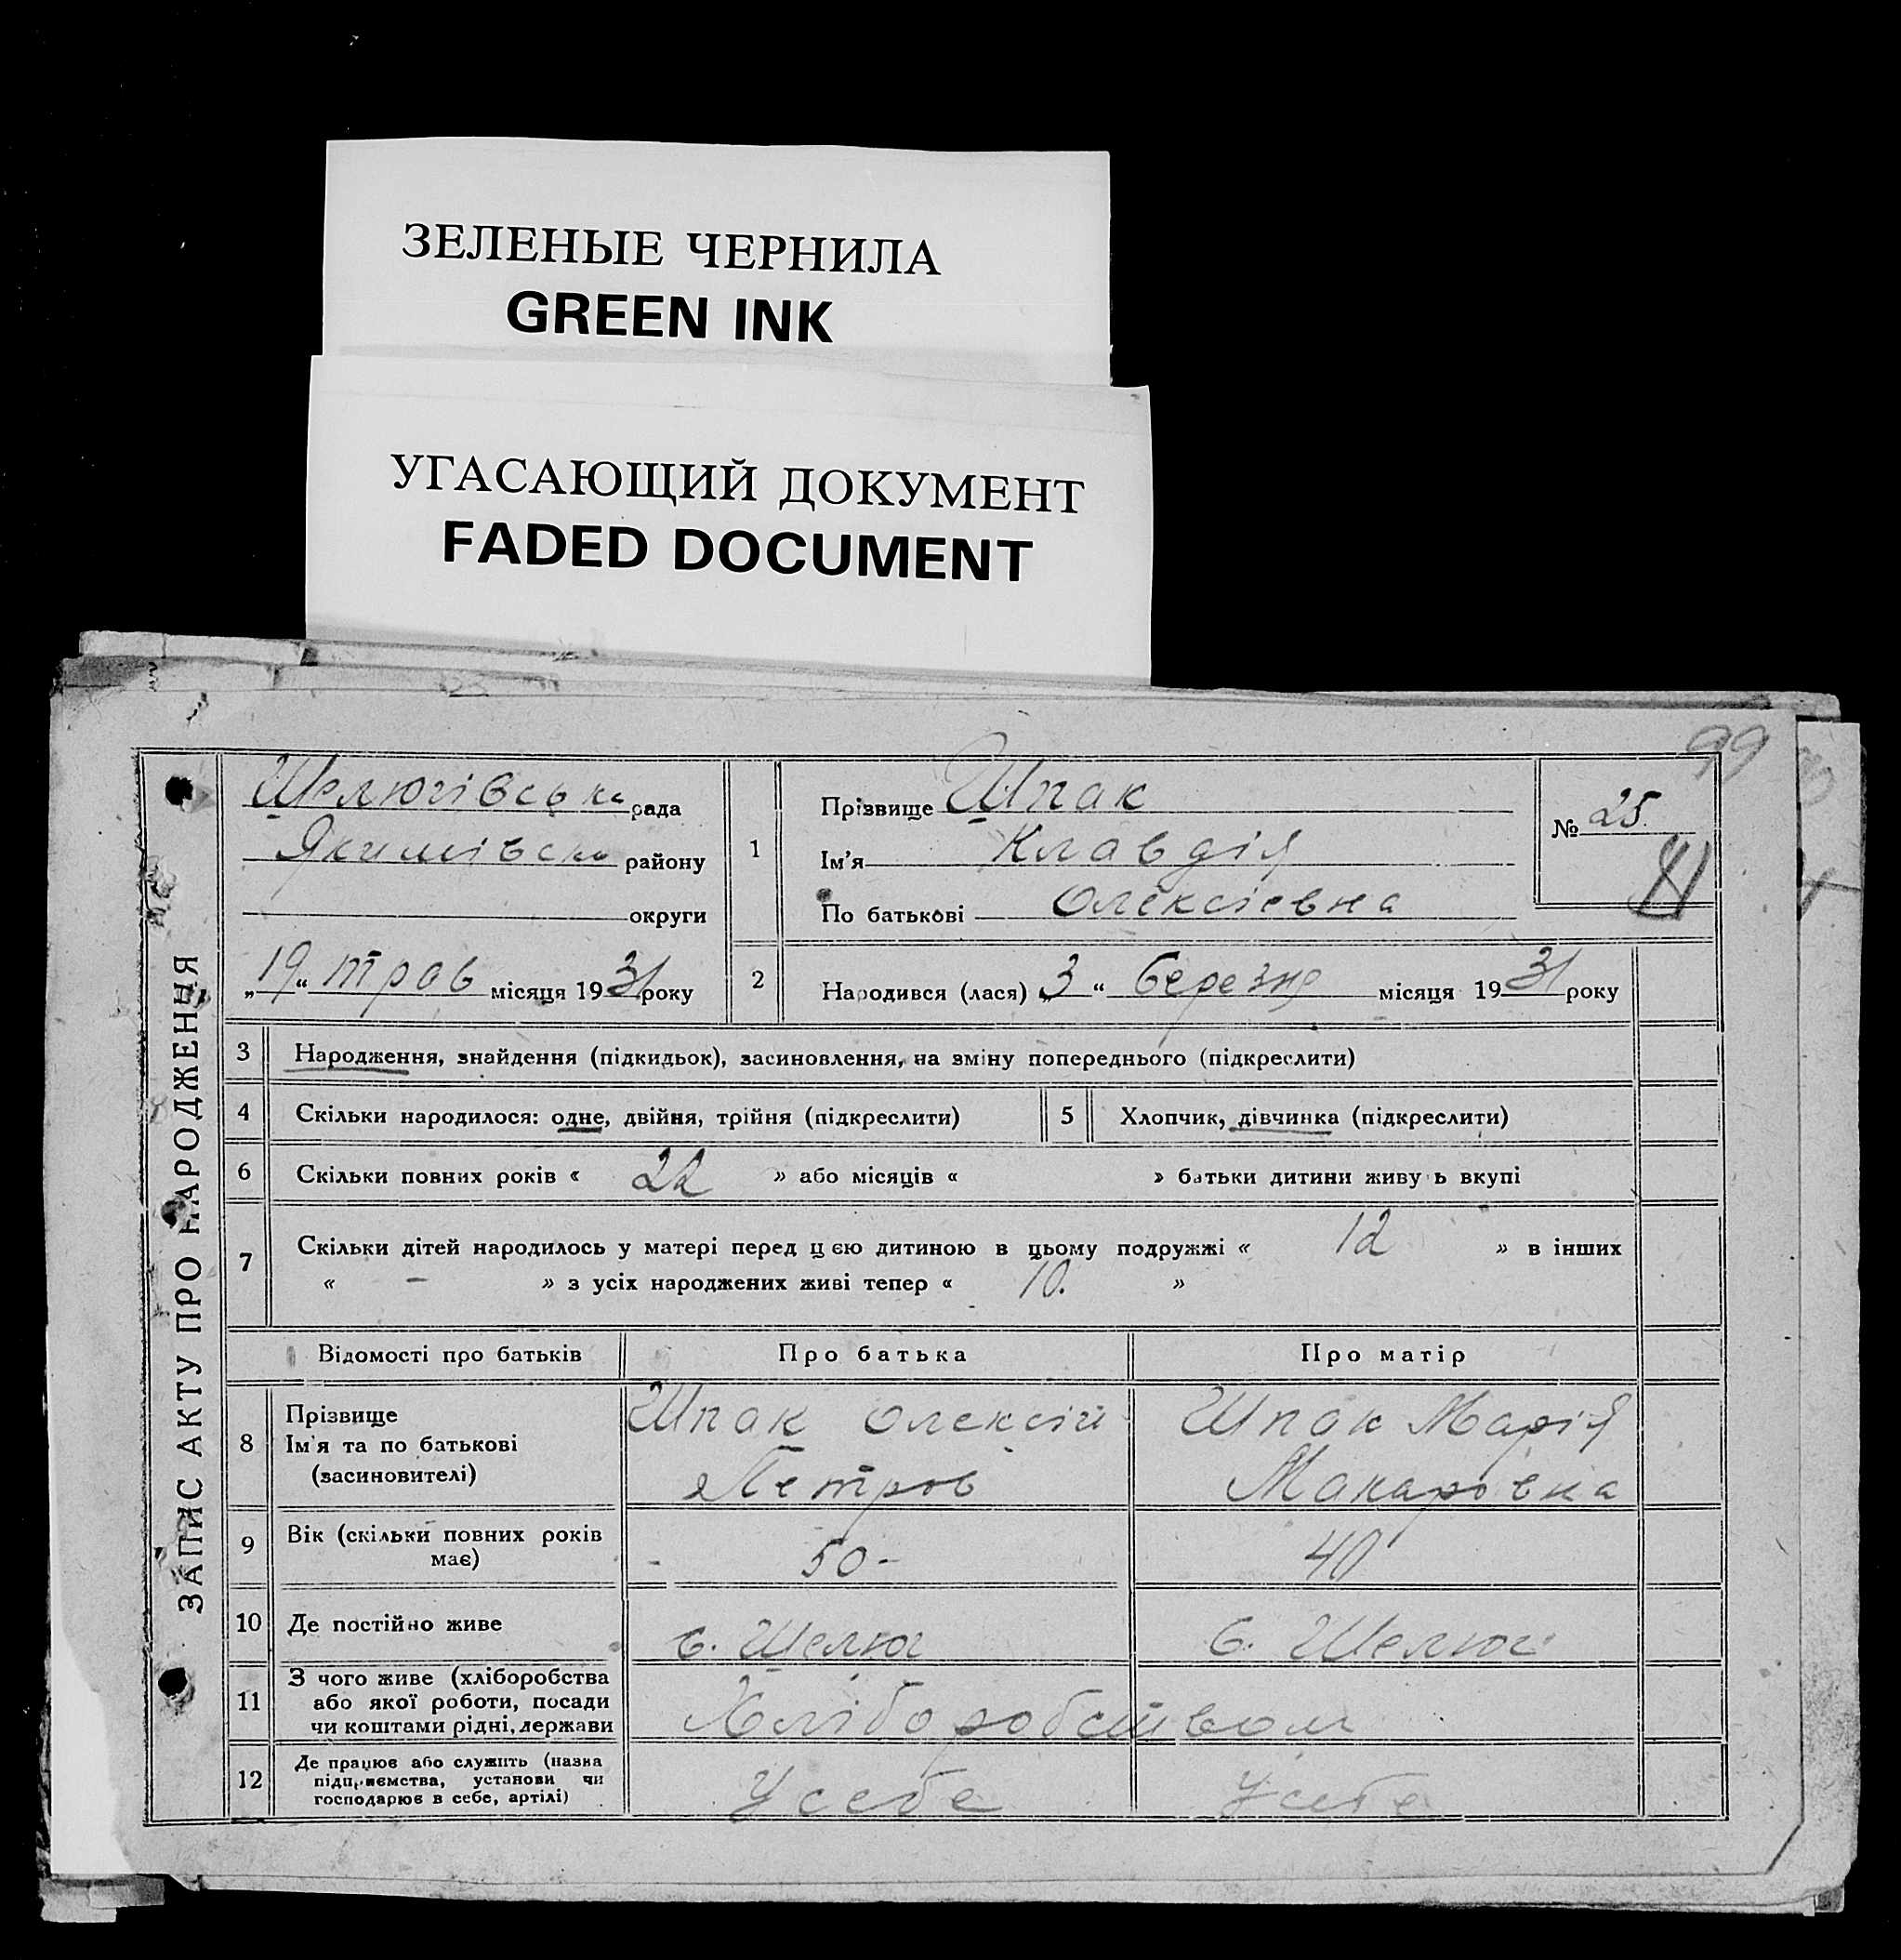 ЗЕЛЕНЫЕ ЧЕРНИЛА
GREEN INK
УГАСАЮЩИЙ ДОКУМЕНТ
FADED DOCUMENT
99
ЗАПИС АКТУ ПРО НАРОДЖЕННЯ
Шелюгівська рада
Якимівськ району
округи
„19“ трав місяця 1931 року
1
Прізвище Шпак
Ім'я Клавдія
По батькові Олексіевна
№ 25.
81
2
Народився (лася) „3“ березня місяця 1931 року
3 Народження, знайдення (підкидьок), засиновлення, на зміну попереднього (підкреслити)
4 Скільки народилося: одне, двійня, трійня (підкреслити)
5 Хлопчик, дівчинка (підкреслити)
6 Скільки повних років « 22 » або місяців « » батьки дитини живуть вкупі
7 Скільки дітей народилось у матері перед цією дитиною в цьому подружжі « 12 » в інших
« – » з усіх народжених живі тепер « 10. »
Відомості про батьків Про батька Про матір
8 Прізвище
Ім'я та по батькові
(засиновителі)
Шпак Олексій
Петров
Шпак Марія
Макаровна
9 Вік (скільки повних років
має)
- 50 -
40
10 Де постійно живе
с. Шелюг
с. Шелюг
11 З чого живе (хліборобства
або якої роботи, посади
чи коштами рідні, держави
Хліборобством
12 Де працює або служить (назва
підприємства, установи чи
господарює в себе, артілі)
У себе
У себе